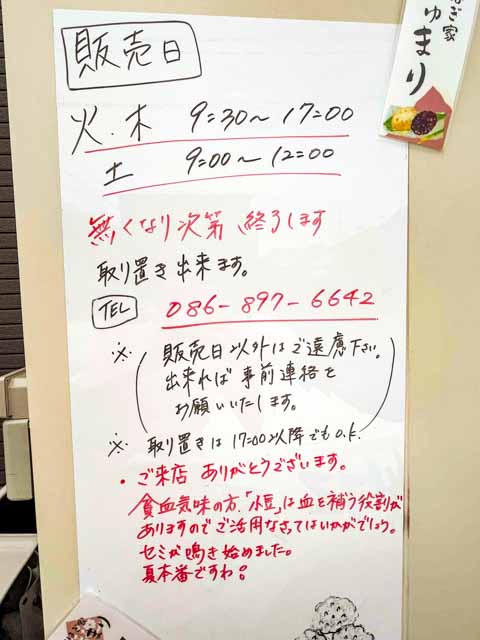 ぎ家
ゅまり
販売日
火・木 9:30〜17:00
土 9:00〜12:00
無くなり次第、終了します
取り置き出来ます。
TEL 086-897-6642
※ 販売日以外はご遠慮下さい。
出来れば事前連絡を
お願いいたします。
※ 取り置きは17:00以降でもO.K.
・ご来店 ありがとうございます。
貧血気味の方、「小豆」は血を補う役割が
ありますのでご活用なさってはいかがでしょう。
セミが鳴き始めました。
夏本番ですね!